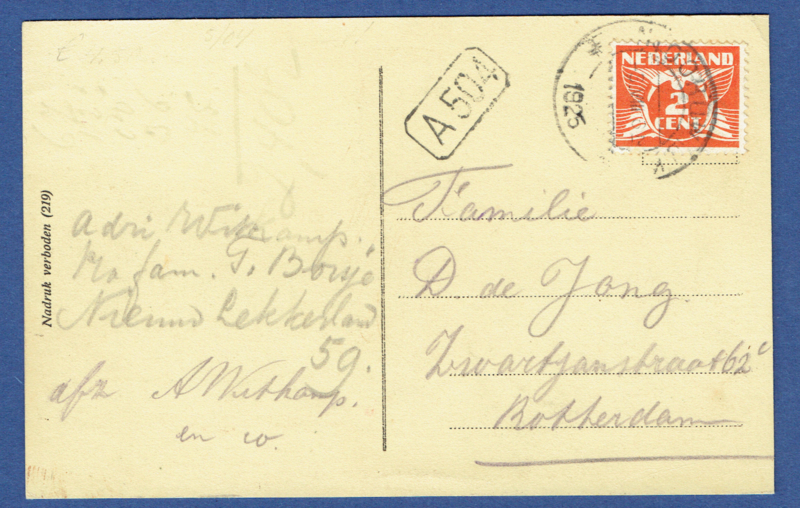 A 504
1925
NEDERLAND
2
CENT
Nadruk verboden (219)
Adri Witkamp.
fam. G. Borsjé
Nieuw Lekkerland
59.
afz AWitkamp.
en w.
Familie
D. de Jong.
Zwartjanstraat 62c
Rotterdam